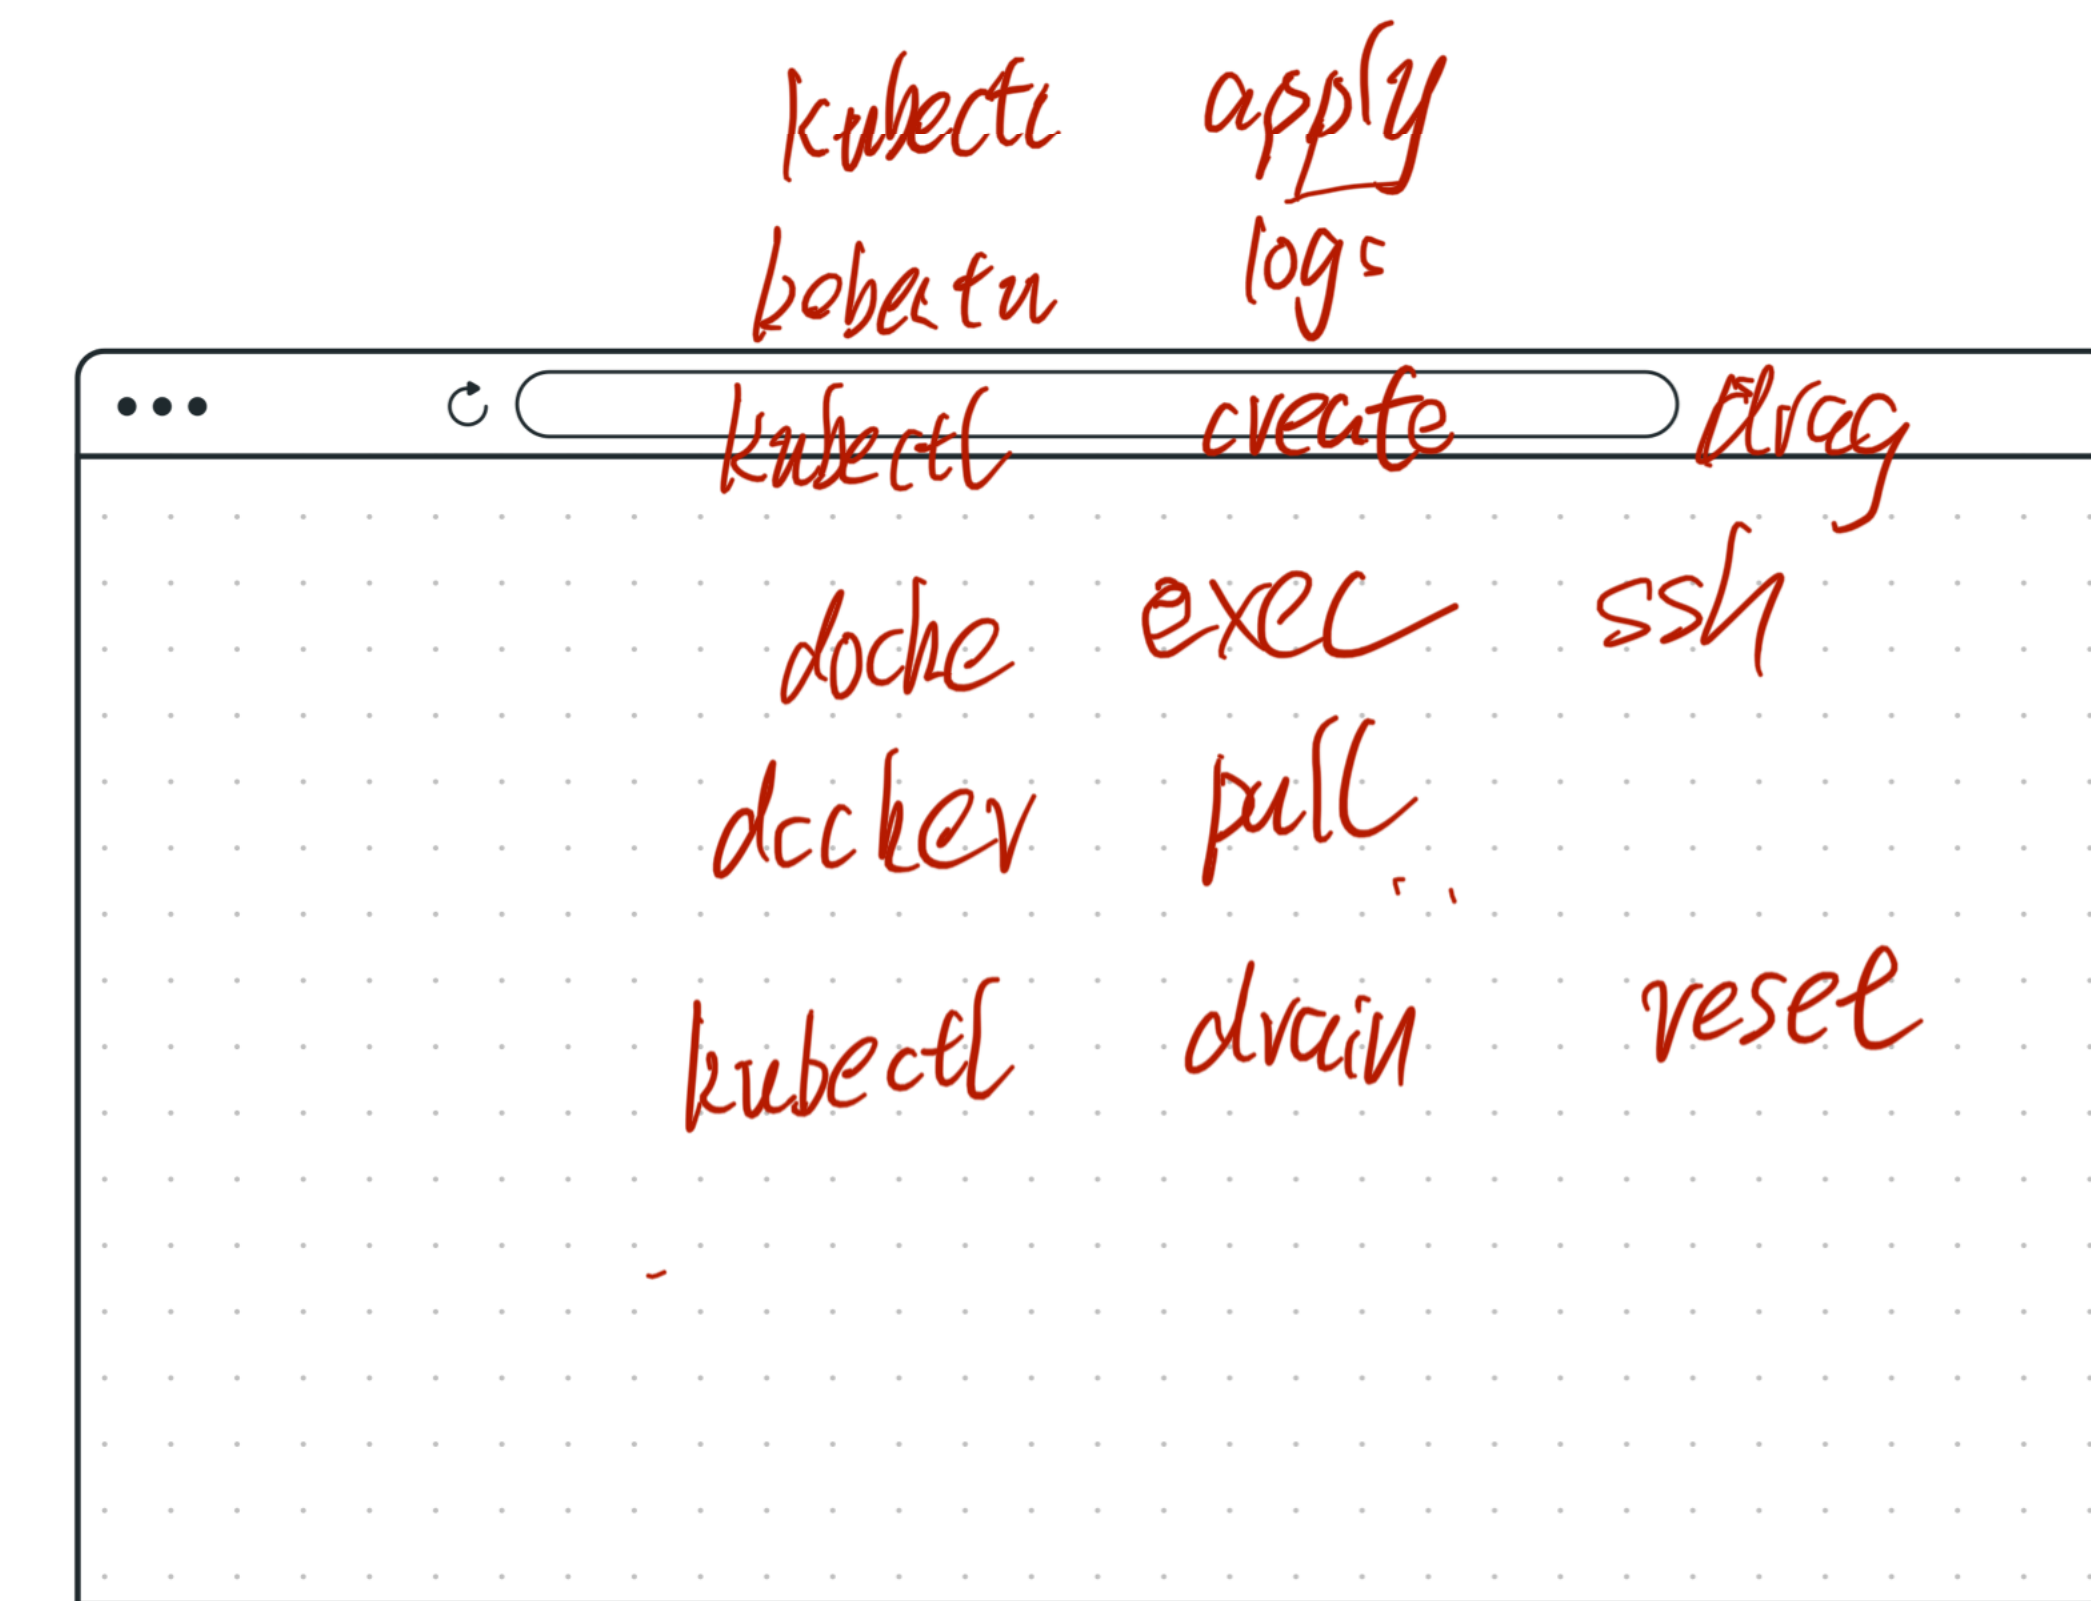 kubectl apply
logs
kubectl create
docke exec ssh
docker pull
kubectl drain reset